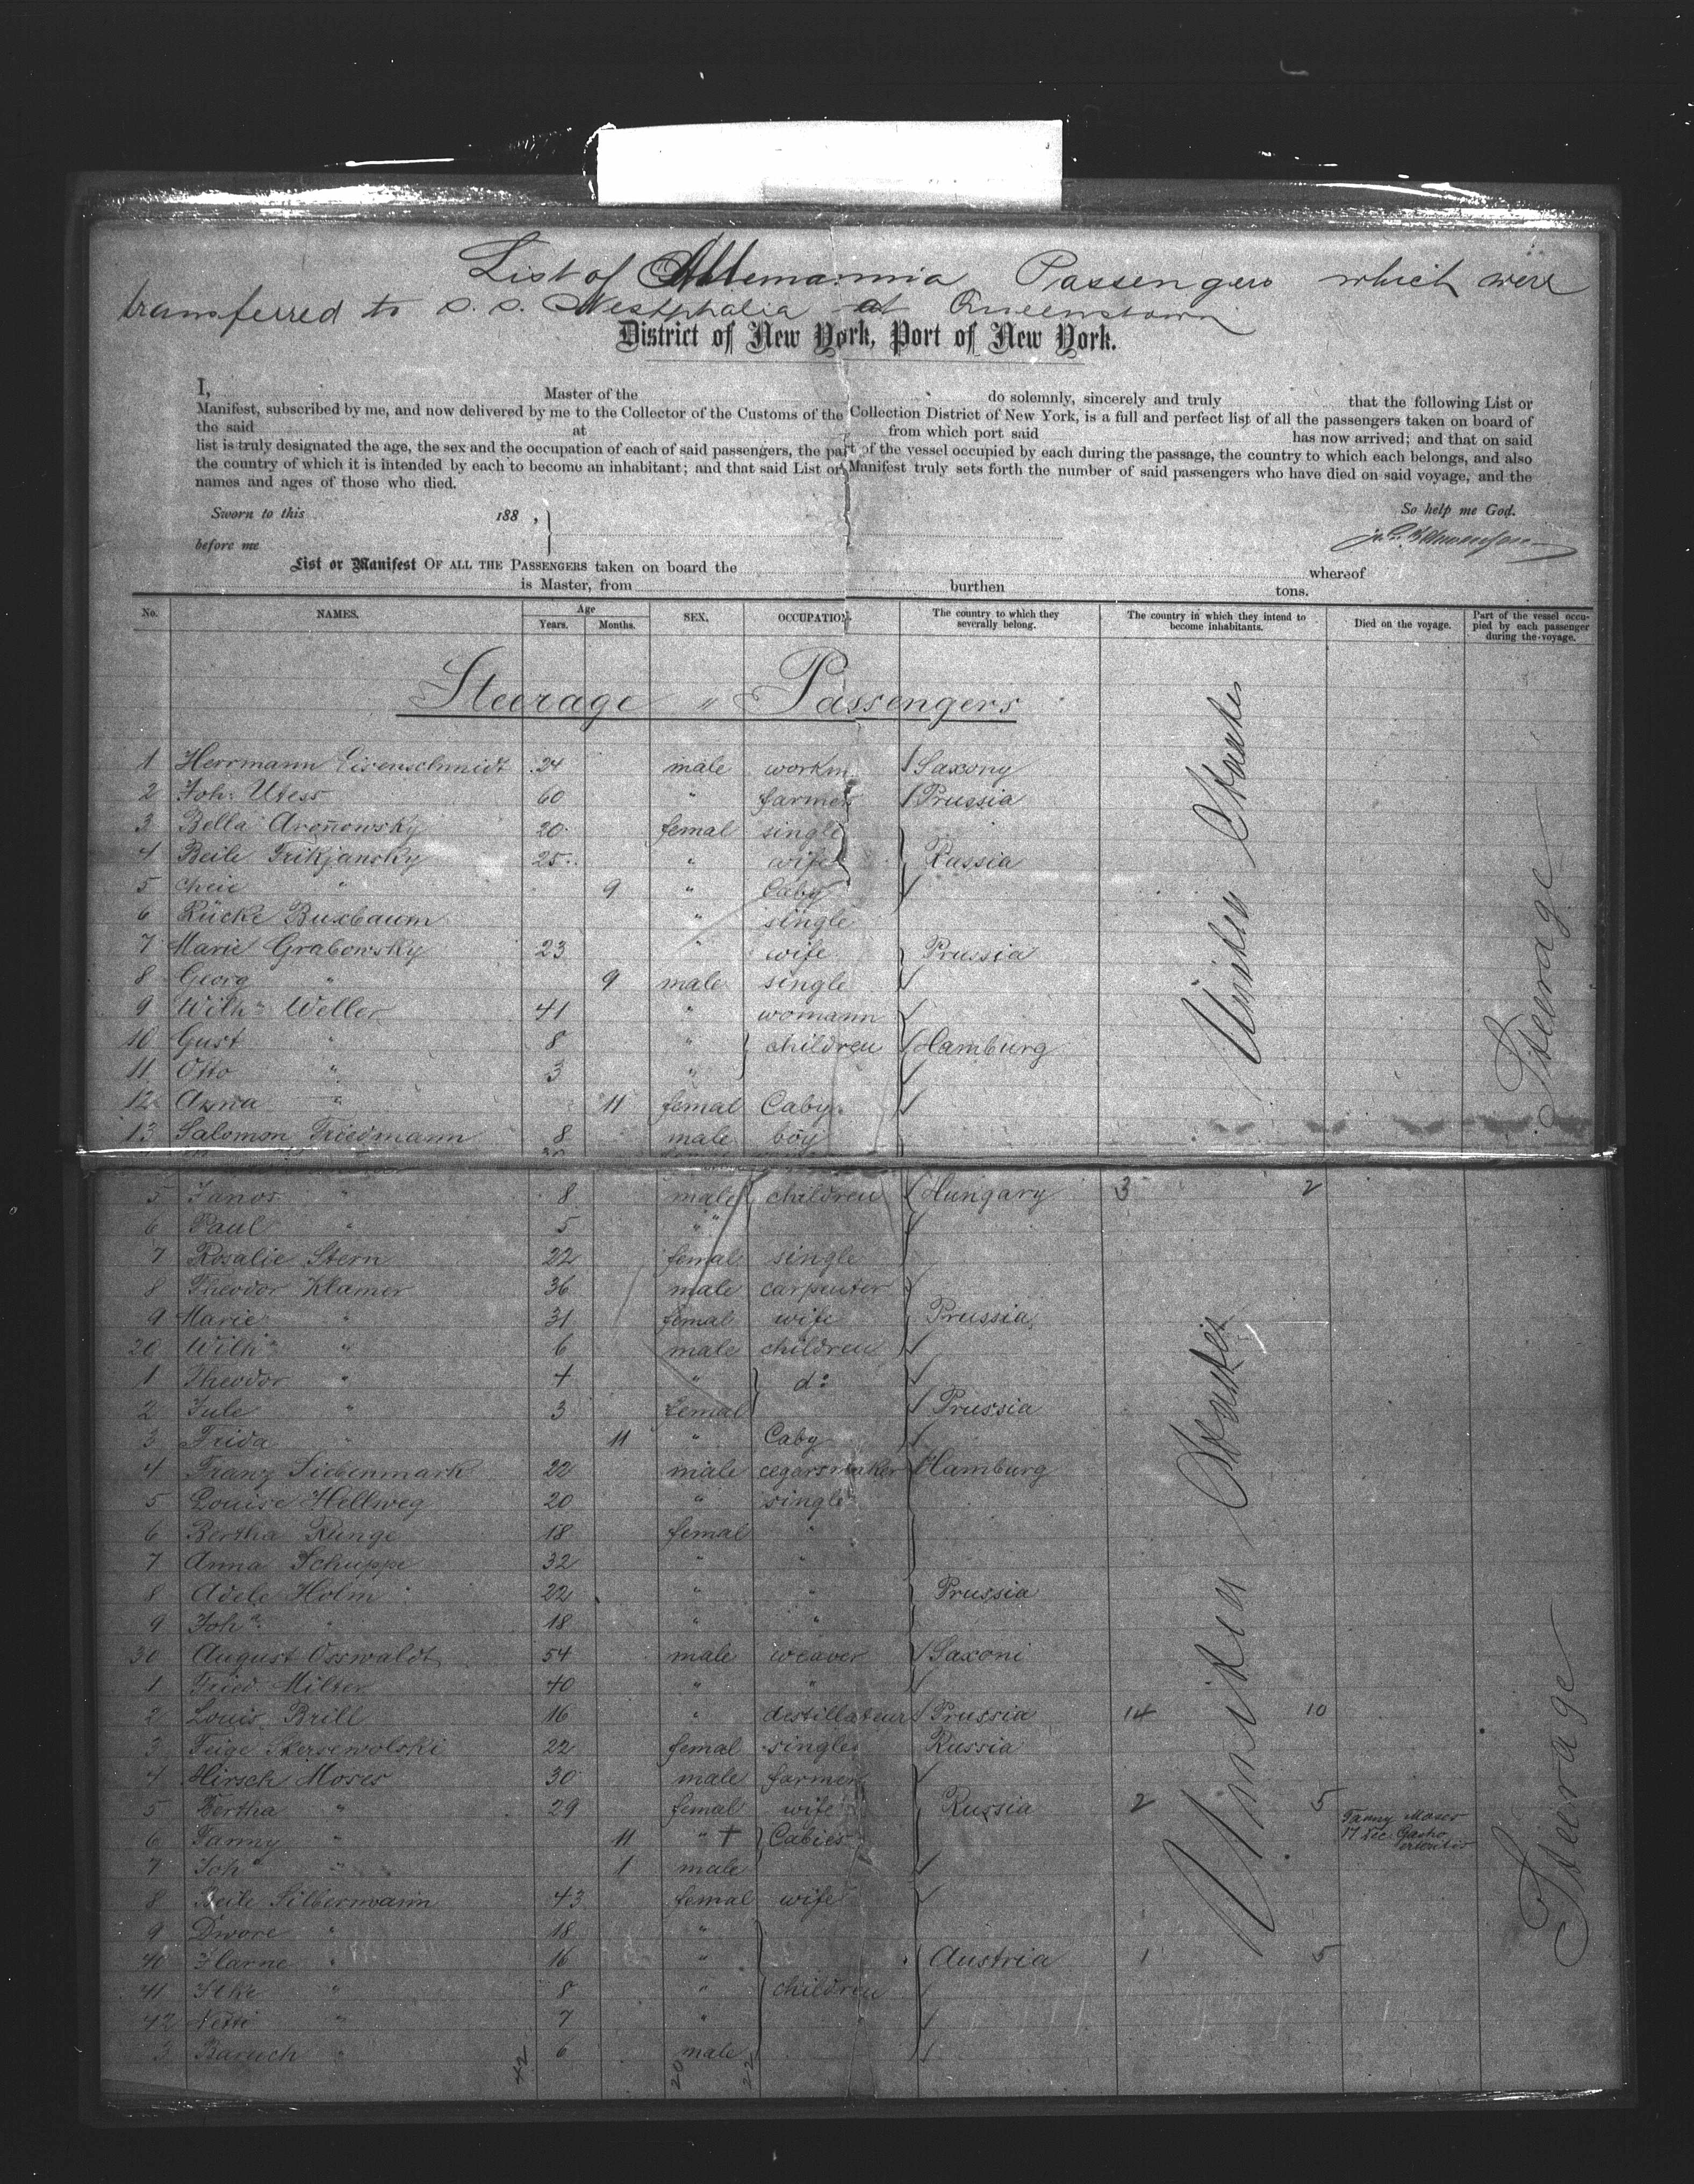 List of Allemannia Passengers which were
transferred to S. S. Westphalia at Queenstown
District of New York, Port of New York.
I, Master of the do solemnly, sincerely and truly that the following List or
Manifest, subscribed by me, and now delivered by me to the Collector of the Customs of the Collection District of New York, is a full and perfect list of all the passengers taken on board of
the said at from which port said has now arrived; and that on said
list is truly designated the age, the sex and the occupation of each of said passengers, the part of the vessel occupied by each during the passage, the country to which each belongs, and also
the country of which it is intended by each to become an inhabitant; and that said List or Manifest truly sets forth the number of said passengers who have died on said voyage, and the
names and ages of those who died.
Sworn to this 188 , So help me God.
before me
List or Manifest OF ALL THE PASSENGERS taken on board the whereof
is Master, from burthen tons.
No. NAMES. Age Years. Months. SEX. OCCUPATION. The country to which they severally belong. The country in which they intend to become inhabitants. Died on the voyage. Part of the vessel occupied by each passenger during the voyage.
Steerage " Passengers
1 Herrmann Eisenschmidt 24 male workm. Saxony
2 Joh. Utess 60 " farmer Prussia
3 Bella Arenowsky 20 femal single
4 Beile Trikjansky 25 " wife Russia
5 Cheie " 9 " Caby
6 Rücke Buxbaum " single
7 Marie Grabowsky 23 " wife Prussia
8 Georg " 9 male single
9 Wilh. Weller 41 " womann
10 Gust " 8 " children Hamburg
11 Otto " 3 "
12 Anna " 11 femal Caby
13 Salomon Friedmann 8 male boy
5 Janos " 8 male children Hungary 3 2
6 Paul " 5 "
7 Rosalie Stern 22 femal single
8 Theodor Klamer 36 male carpenter
9 Marie " 31 femal wife Prussia
20 Wilh. " 6 male children
1 Theodor " 4 " do
2 Jule " 3 femal Prussia
3 Frida " 11 " Caby
4 Franz Siebenmark 22 male cegarsmaker Hamburg
5 Louise Hellweg 20 " single
6 Bertha Runge 18 femal "
7 Anna Schuppe 32 " "
8 Adele Holm 22 " " Prussia
9 Joh. " 18 " "
30 August Osswaldt 54 male weaver Saxoni
1 Fried. Milter 40 " "
2 Louis Brill 16 " destillateur Prussia 14 10
3 Feige Skersewolski 22 femal single Russia
4 Hirsch Moses 30 male farmer
5 Bertha " 29 femal wife Russia 2 5
6 Fanny " 11 " † Cabies Fanny Moses
17 Dec. Gastro
7 Joh. " 1 male
8 Beile Silbermann 43 femal wife
9 Dwore " 18 "
40 " 16 " Austria 1 5
41 " 8 " children
42 Netti " 7 "
3 Baruch " 6 male
42 20 22
United States
United States
Steerage
Steerage